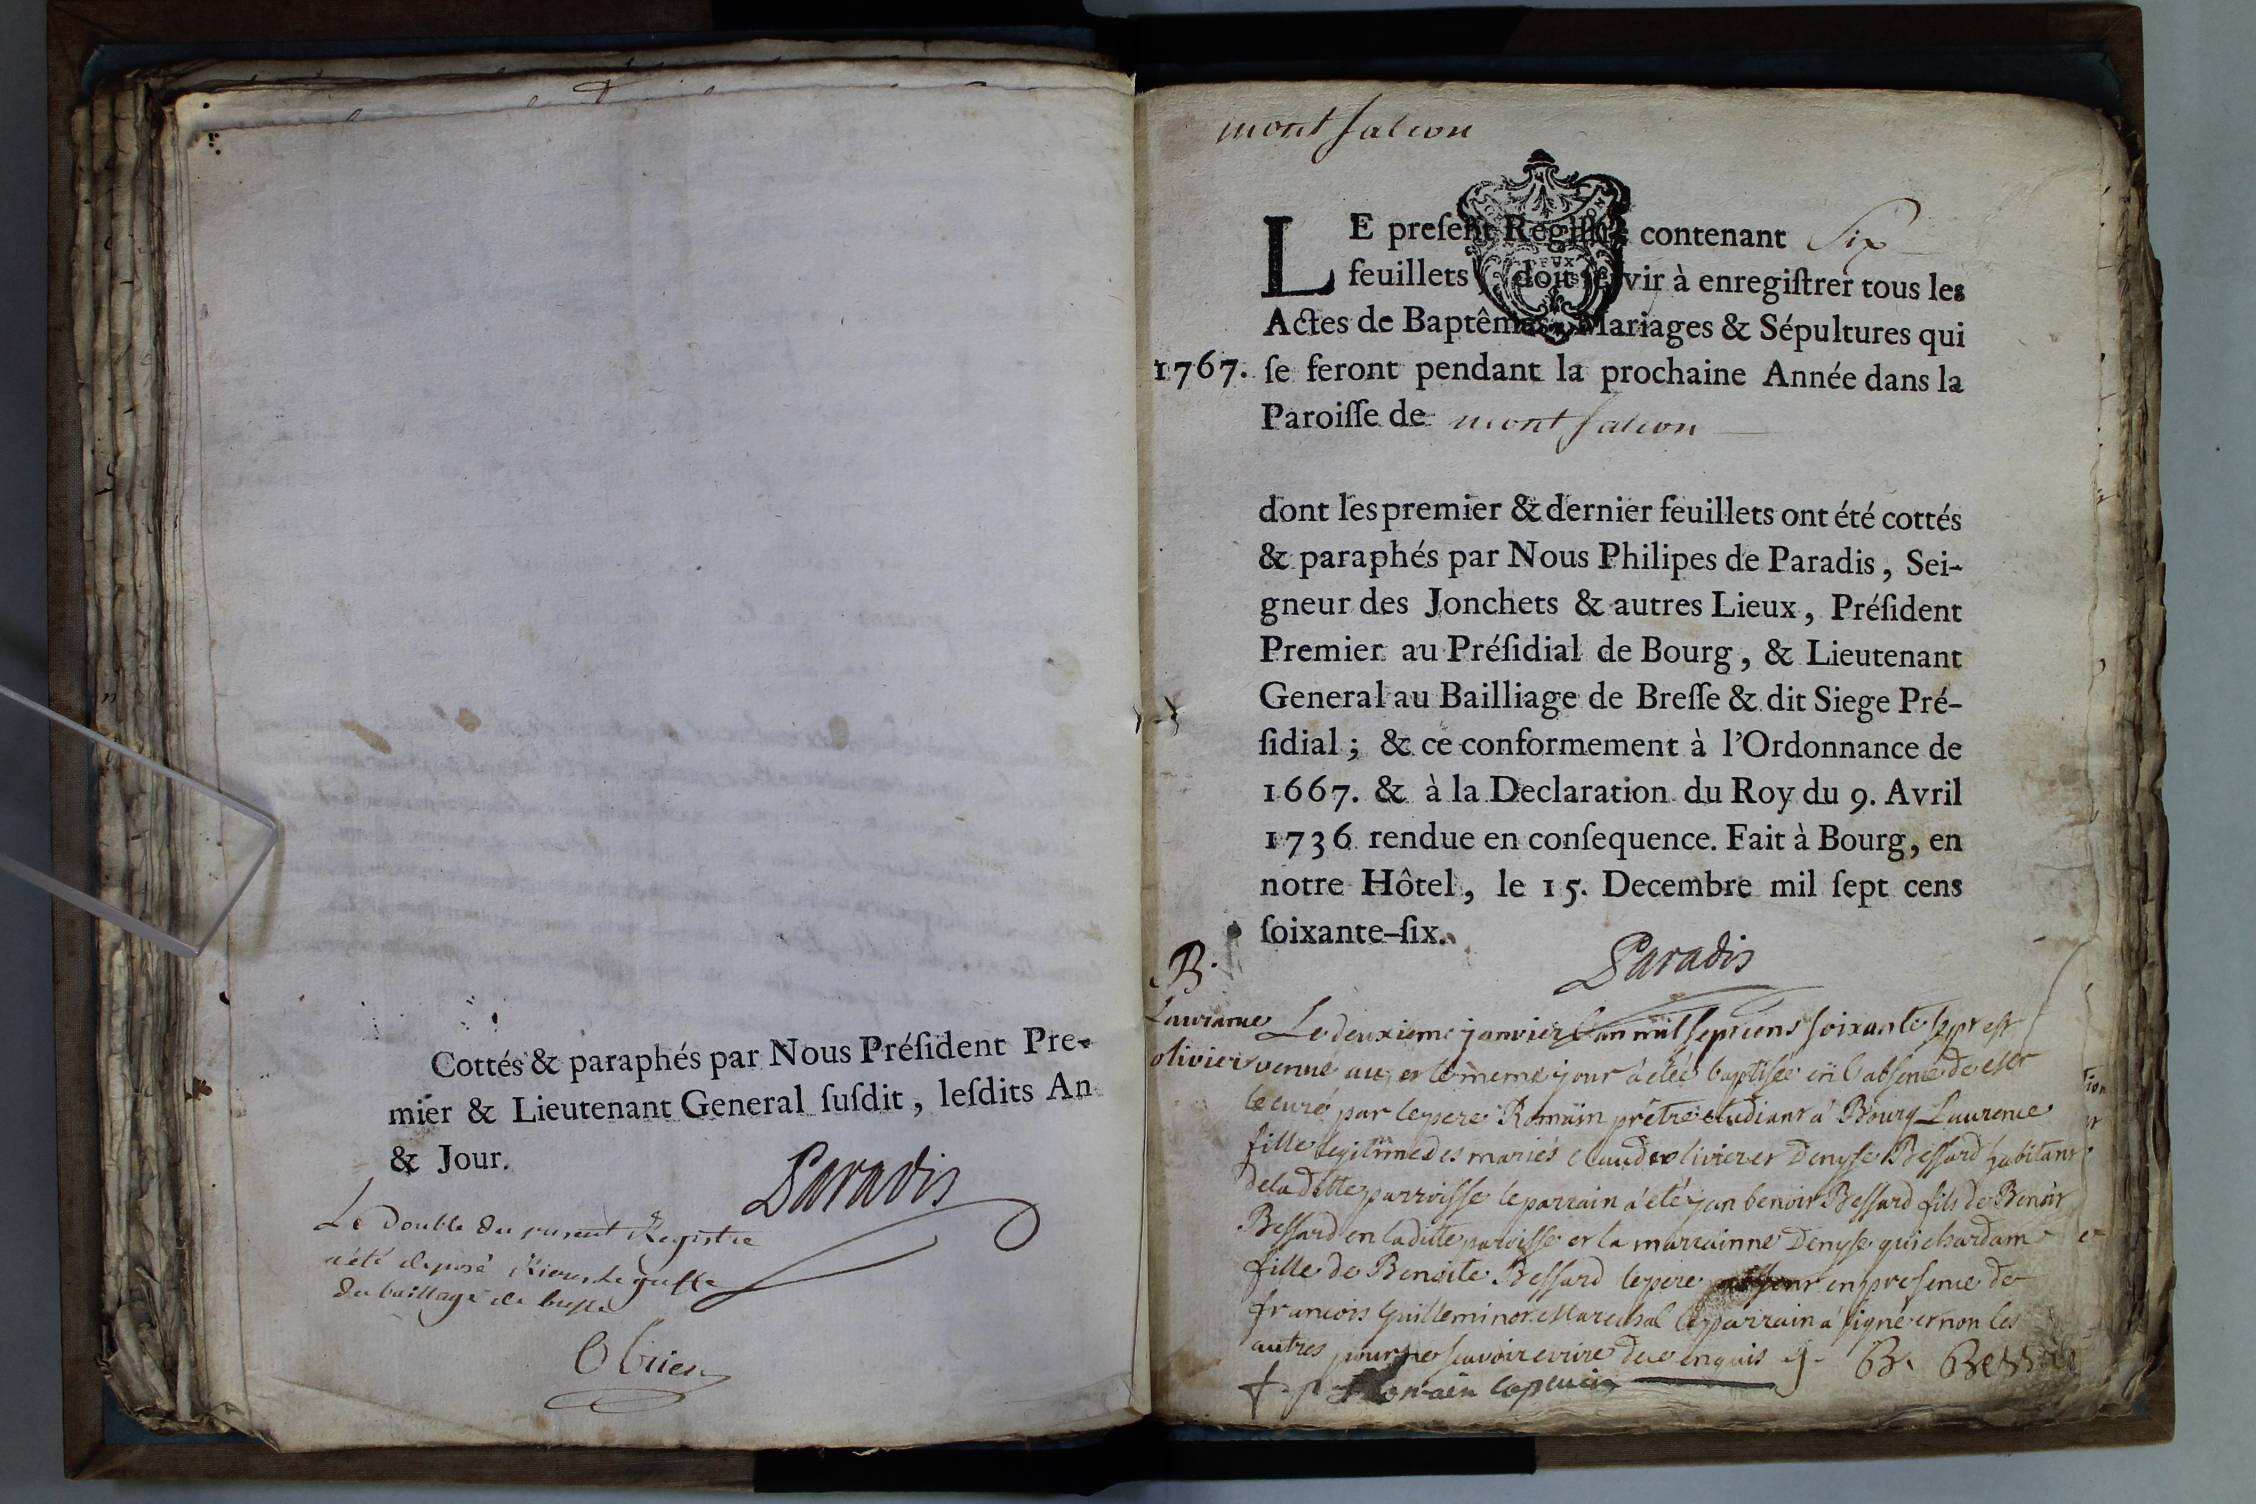 Cottés & paraphés par Nous Préſident Pre-
mier & Lieutenant General ſuſdit, leſdits An
& Jour.
Paradis
Le Double du present Registre
a été deposé riere le greffe
du bailliage de bresse
Obrien
montfalcon
LE preſent Regiſtre contenant Six
feuillets, doit ſervir à enregiſtrer tous les
Actes de Baptêmes, Mariages & Sépultures qui
1767. ſe feront pendant la prochaine Année dans la
Paroiſſe de montfalcon
dont les premier & dernier feuillets ont été cottés
& paraphés par Nous Philipes de Paradis, Sei-
gneur des Jonchets & autres Lieux, Préſident
Premier au Préſidial de Bourg, & Lieutenant
General au Bailliage de Breſſe & dit Siege Pré-
ſidial; & ce conformement à l'Ordonnance de
1667. & à la Declaration du Roy du 9. Avril
1736 rendue en conſequence. Fait à Bourg, en
notre Hôtel, le 15. Decembre mil ſept cens
ſoixante-ſix.
Paradis
B.
Laurance
olivier
Le deuxieme janvier l'an mil sept cens soixante sept est
venue au, et le meme jour a étée baptisée en l'absence de
le curé par le pere Romain prêtre etudiant a Bourg Laurence
fille legitime des mariés claude olivier et Denyse Bessard habitans
de la ditte parroisse le parrain a été jan benoit Bessard fils de Benoit
Bessard en laditte paroisse et la marrainne Denyse guichardam
fille de Benoite Bessard le pere en presence de
francois guilleminot Marechal le parrain a signé et non les
autres pour ne scavoir ecrire de ce enquis B. Bessard
f. p. Romain capucin